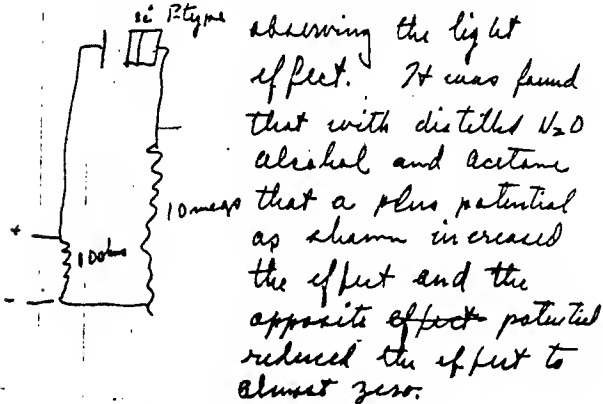 Si P-type
observing the light
effect. It was found
that with distilled H2O
alcohol and acetone
10 megs that a plus potential
+ as shown increased
the effect and the
- opposite effect potential
reduced the effect to
almost zero.